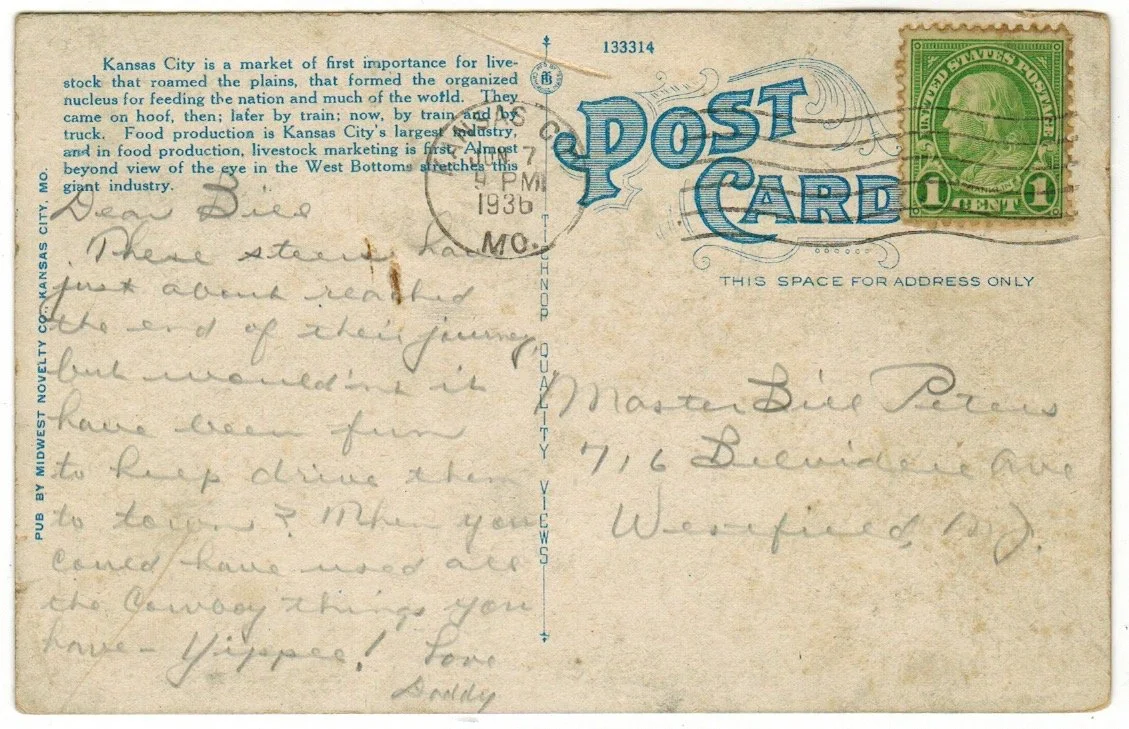 133314
Kansas City is a market of first importance for live-
stock that roamed the plains, that formed the organized
nucleus for feeding the nation and much of the world. They
came on hoof, then; later by train; now, by train and by
truck. Food production is Kansas City's largest industry,
and in food production, livestock marketing is first. Almost
beyond view of the eye in the West Bottoms stretches this
giant industry.
POST CARD
THIS SPACE FOR ADDRESS ONLY
KANSAS CITY
JUN 7
9 PM
1936
MO.
UNITED STATES POSTAGE
FRANKLIN
1 CENT 1
PUB BY MIDWEST NOVELTY CO., KANSAS CITY, MO.
TICHNOR QUALITY VIEWS
Dear Bill
These steers have
just about reached
the end of their journey,
but wouldn't it
have been fun
to help drive them
to town? When you
could have used all
the Cowboy things you
have - Yippee! Love
Daddy
Master Bill Peters
716 Belvidere Ave
Westfield, N.J.